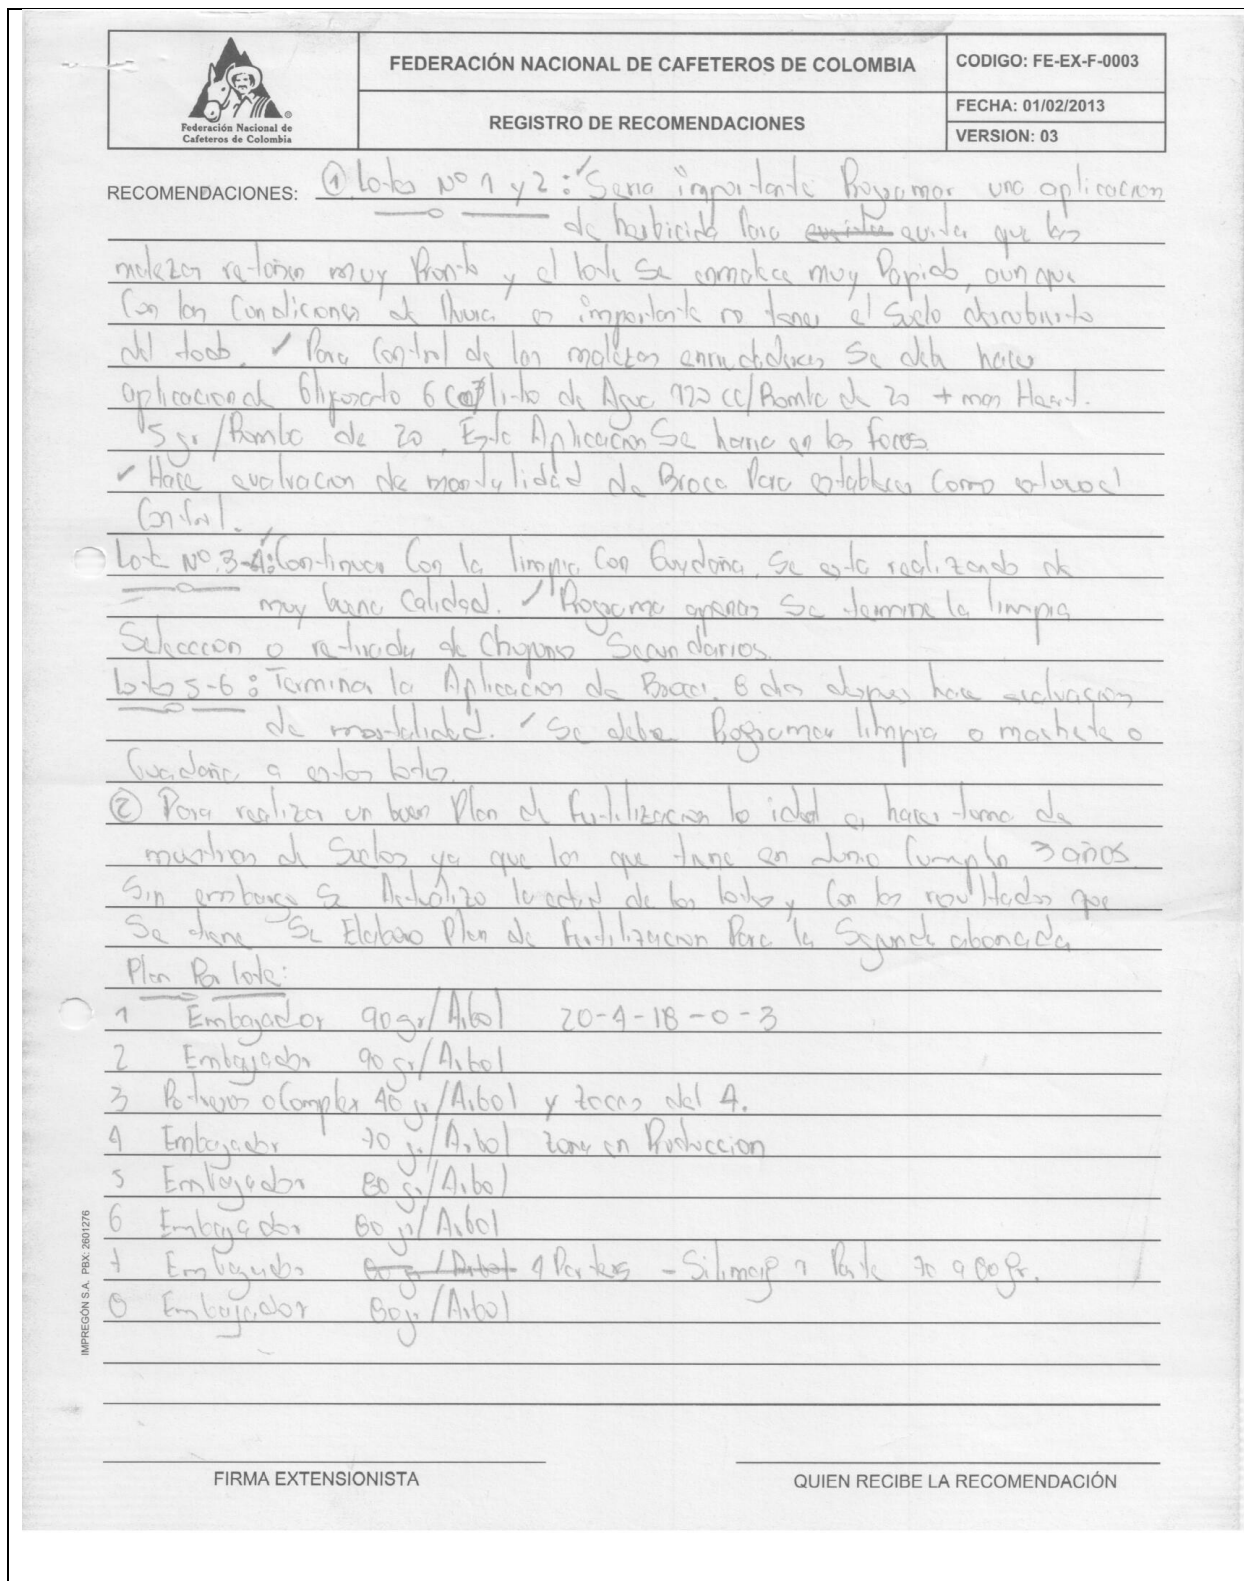 FEDERACIÓN NACIONAL DE CAFETEROS DE COLOMBIA
CODIGO: FE-EX-F-0003
REGISTRO DE RECOMENDACIONES
FECHA: 01/02/2013
VERSION: 03
Federación Nacional de
Cafeteros de Colombia
RECOMENDACIONES: ① Lotes Nº 1 y 2: ✓ Seria importante Programar una aplicacion
de herbicida Para evitar que las
malezas retoñen muy Pronto y el lote Se enmalece muy Rapido, aunque
Con las Condiciones de lluvia es importante no tener el Suelo descubierto
del todo. ✓ Para Control de las malezas enredaderas Se debe hacer
aplicacion de Glifosato 6 cc/litro de Agua 120 cc/Bomba de 20 + mas
5 gr/Bomba de 20. Esta Aplicacion Se haria en los focos.
✓ Hace evaluacion de mortalidad de Broca Para establecer Como estuvo el
Control.
Lote Nº 3-4: ✓ Continuar Con la limpia Con Guadaña, Se esta realizando de
muy buena Calidad. ✓ Programe apenas Se termine la limpia
Seleccion o retirada de Chupones Secundarios.
Lotes 5-6: Terminar la Aplicacion de Broca. 8 dias despues hace evaluacion
de mortalidad. ✓ Se debe Programar limpia a machete o
Guadaña a estos lotes.
② Para realizar un buen Plan de fertilizacion lo ideal es hacer toma de
muestras de Suelos ya que los que tiene en Junio Cumplen 3 años.
Sin embargo Se Actualizo la edad de los lotes y Con los resultados que
Se tiene Se Elaboro Plan de fertilizacion Para la Segunda abonada
Plan Por lote:
1 Embajador 90 gr/Arbol 20-4-18-0-3
2 Embajador 90 gr/Arbol
3 40 gr/Arbol y zocas del 4.
4 Embajador 70 gr/Arbol zona en Produccion
5 Embajador 80 gr/Arbol
6 Embajador 80 gr/Arbol
7 Embajador 80 gr/Arbol 4 Partes - 1 Parte 70 a 80 gr.
8 Embajador 80 gr/Arbol
IMPREGÓN S.A. PBX: 2601276
FIRMA EXTENSIONISTA
QUIEN RECIBE LA RECOMENDACIÓN